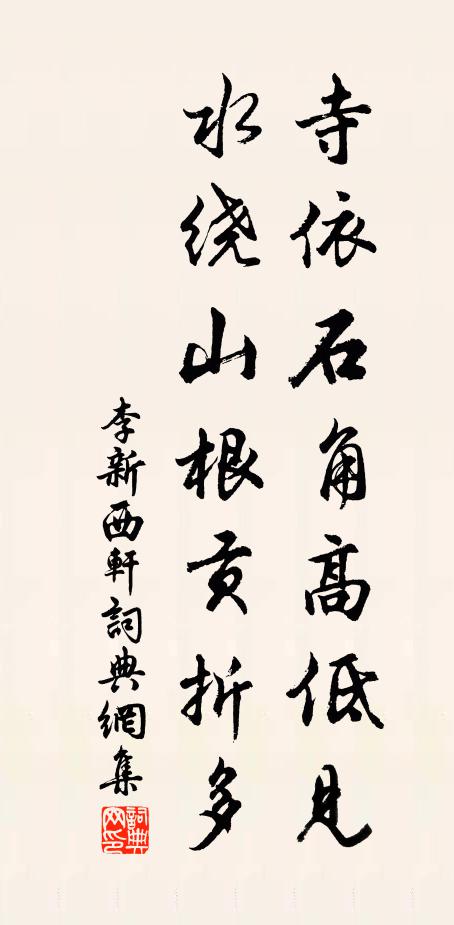 寺依石角高低见
水绕山根贡折多
李新西軒詞典網集
詞典网印